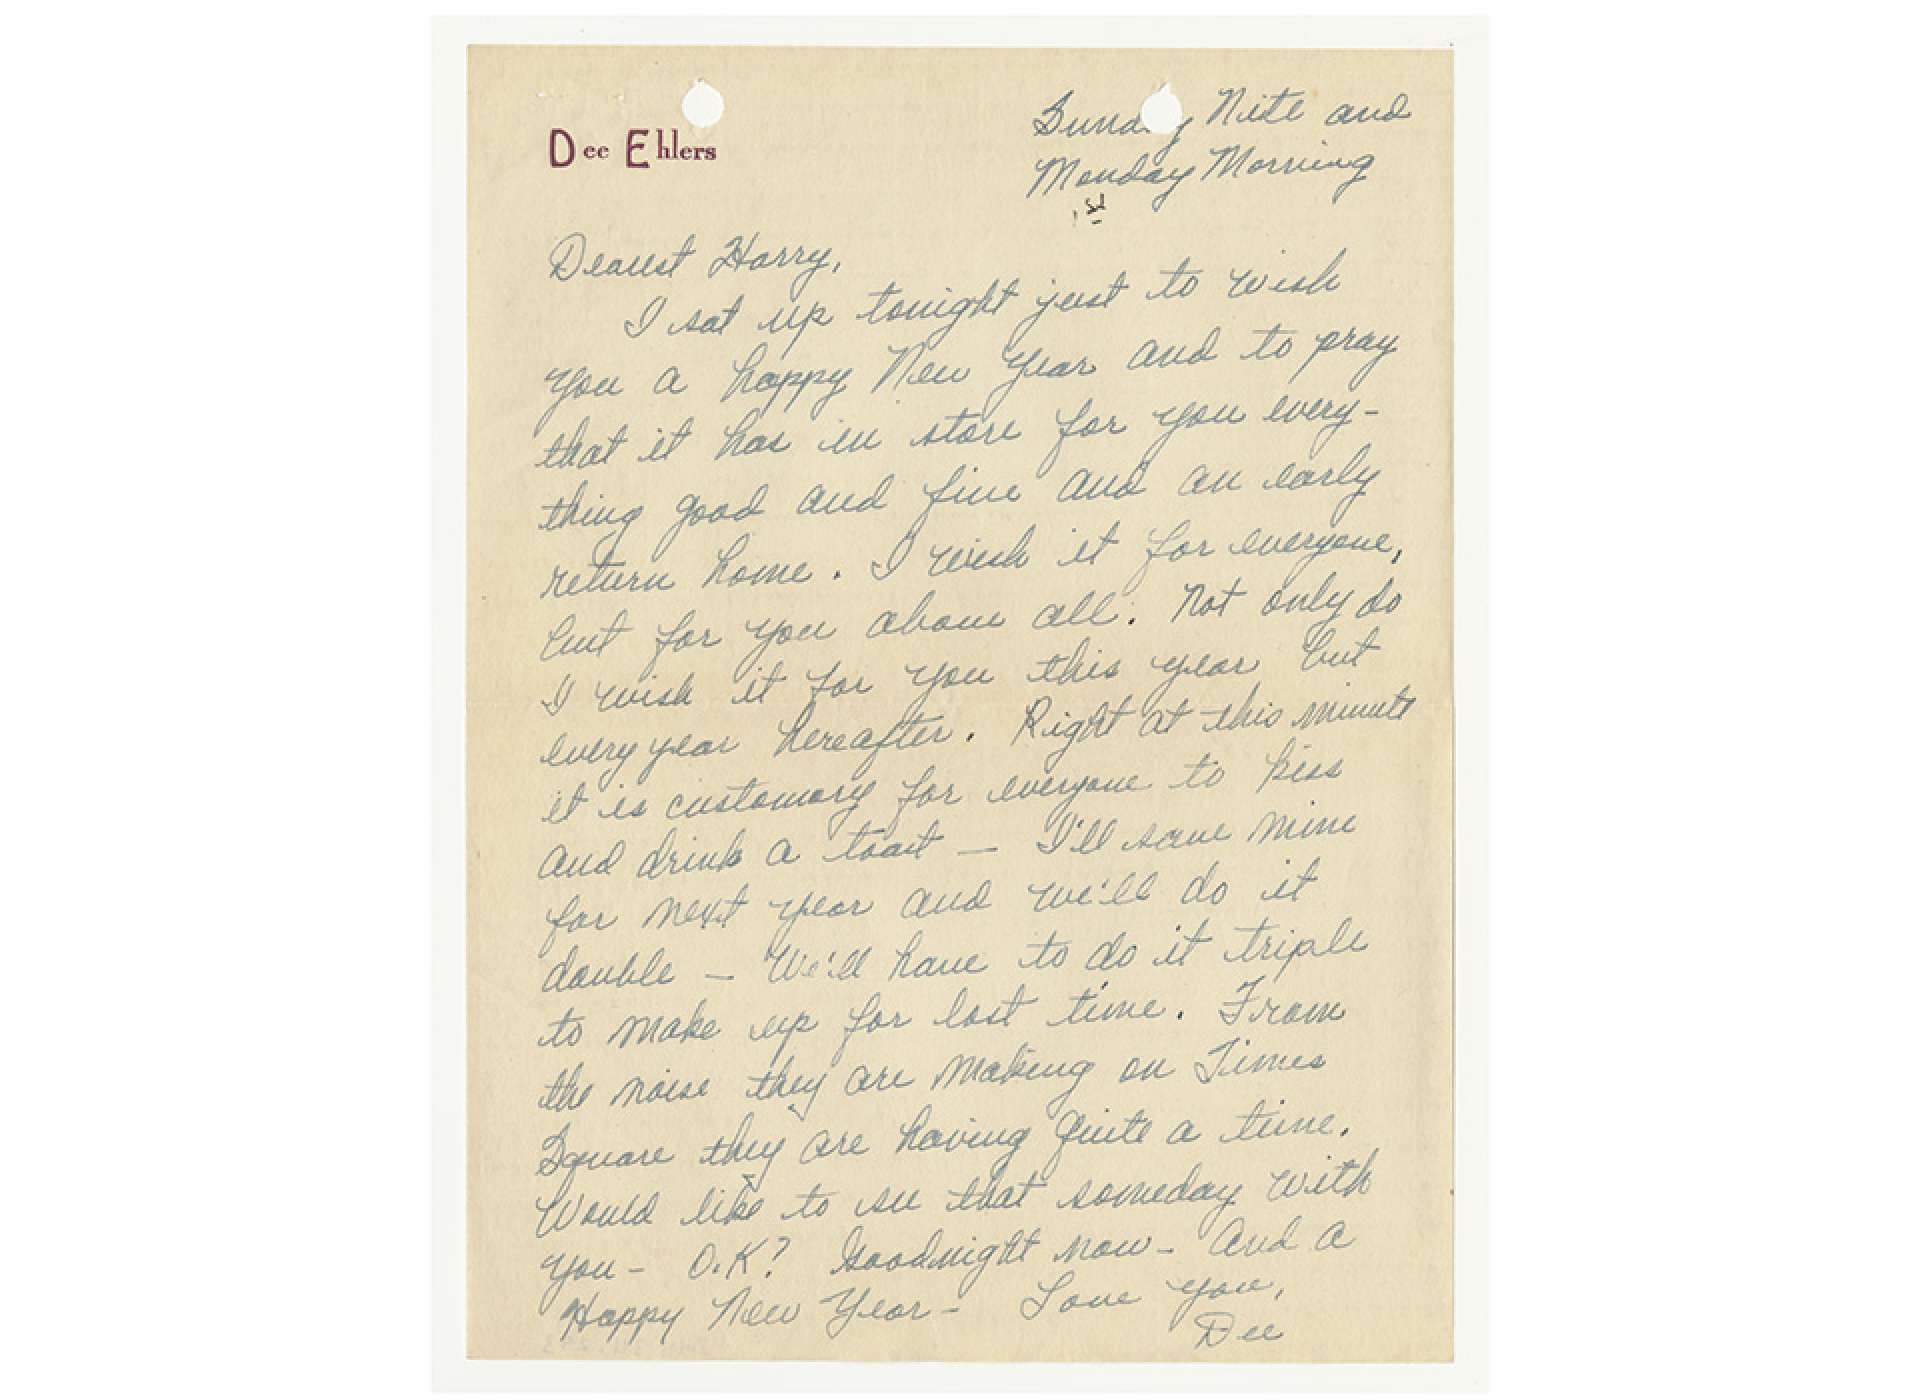 Dee Ehlers
Sunday Nite and
Monday Morning
1st
Dearest Harry,
I sat up tonight just to wish
you a happy New Year and to pray
that it has in store for you every-
thing good and fine and an early
return home. I wish it for everyone,
but for you above all. Not only do
I wish it for you this year but
every year hereafter. Right at this minute
it is customary for everyone to kiss
and drink a toast — I'll save mine
for next year and we'll do it
double — We'll have to do it triple
to make up for lost time. From
the noise they are making on Times
Square they are having quite a time.
Would like to see that someday with
you - O.K? Goodnight now - And a
Happy New Year - Love you,
Dee